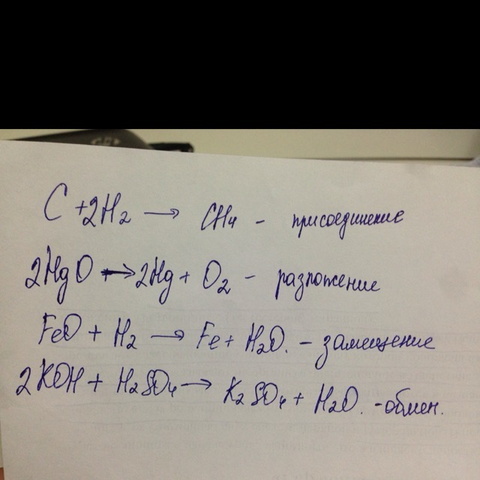 C + 2H₂ → CH₄ - присоединение
2HgO → 2Hg + O₂ - разложение
FeO + H₂ → Fe + H₂O. - замещение
2KOH + H₂SO₄ → K₂SO₄ + H₂O. - обмен.